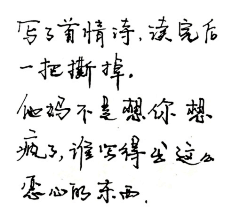 写了首情诗，读完后
一把撕掉。
他妈不是想你想
疯了，谁写得出这么
恶心的东西.